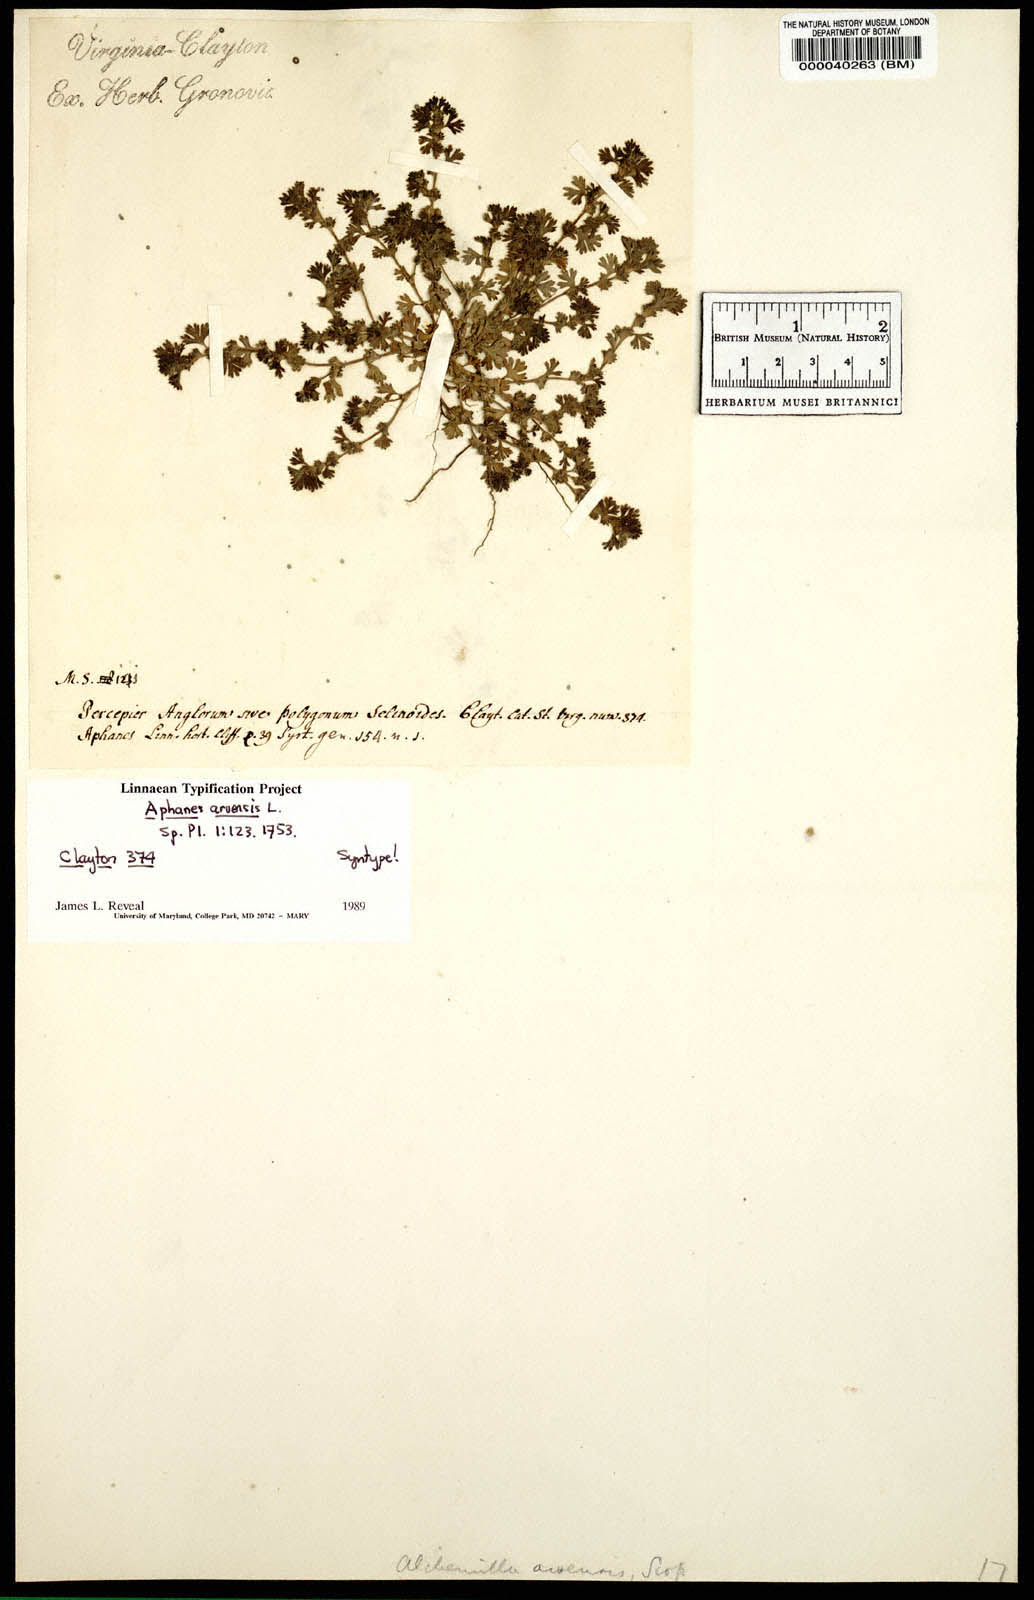 Virginia-Clayton
Ex. Herb. Gronovii
THE NATURAL HISTORY MUSEUM, LONDON
DEPARTMENT OF BOTANY
000040263 (BM)
1 2
BRITISH MUSEUM (NATURAL HISTORY)
1 2 3 4 5
HERBARIUM MUSEI BRITANNICI
M. S.
Percepier Anglorum sive polygonum Selinoides. Clayt. Cat. St. Virg. num. 374.
Aphanes Linn. hort. Cliff. p. 39 Syst. gen. 154. n. 1.
Linnaean Typification Project
Aphanes arvensis L.
Sp. Pl. 1:123. 1753.
Clayton 374 Syntype!
James L. Reveal 1989
University of Maryland, College Park, MD 20742 – MARY
Alchemilla arvensis, Scop
17